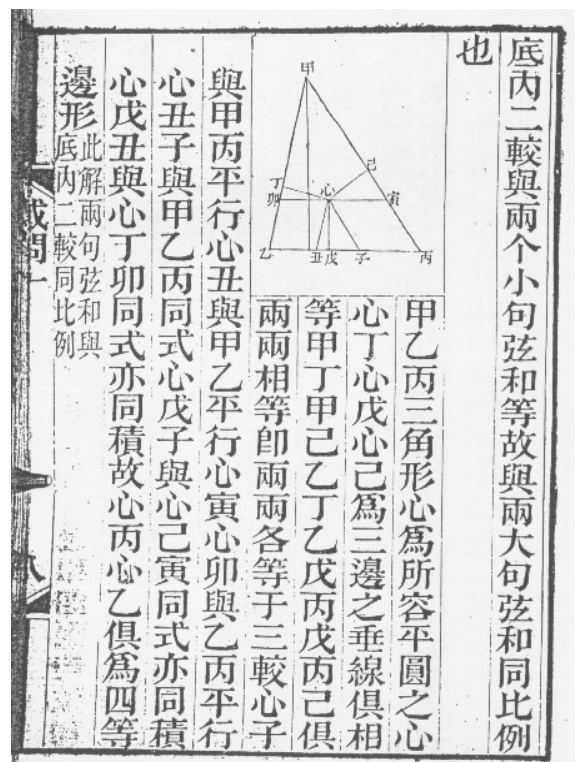 底內二較與兩个小句弦和等故與兩大句弦和同比例
也
甲
己
丁
心
卯
寅
乙
丑
戊
子
丙
甲乙丙三角形心為所容平圓之心
心丁心戊心己為三邊之垂線俱相
等甲丁甲己乙丁乙戊丙戊丙己俱
兩兩相等卽兩兩各等于三較心子
與甲丙平行心丑與甲乙平行心寅心卯與乙丙平行
心丑子與甲乙丙同式心戊子與心己寅同式亦同積
心戊丑與心丁卯同式亦同積故心丙心乙俱為四等
邊形
此解兩句弦和與
底內二較同比例
八